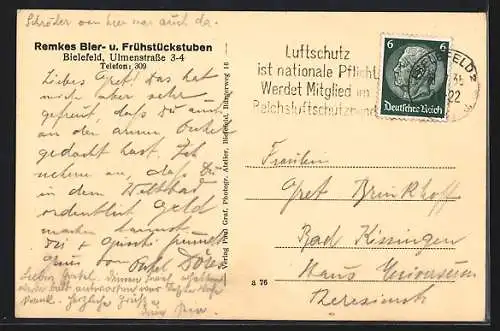 Schröder von hier war auch da.
Remkes Bier- u. Frühstückstuben
Bielefeld, Ulmenstraße 3-4
Telefon: 309
Liebes Gret! Das hat
mich aber sehr
gefreut, daß du auch
an den armen Onkel
gedacht hast. Ich
nehme an, daß Du
in dem Weltbad
ordentlich Geld
machen kannst.
Gruß von Onkel
Lieber Onkel.
bald antworten
Herzliche Grüße
Verlag Paul Graf, Photogr. Atelier, Bielefeld, Bürgerweg 16
a 76
Luftschutz
ist nationale Pflicht
Werdet Mitglied im
Reichsluftschutz
BIELEFELD 2
35
22
6 6
Deutsches Reich
Fräulein
Gret Brinkhoff
Bad Kissingen
Haus